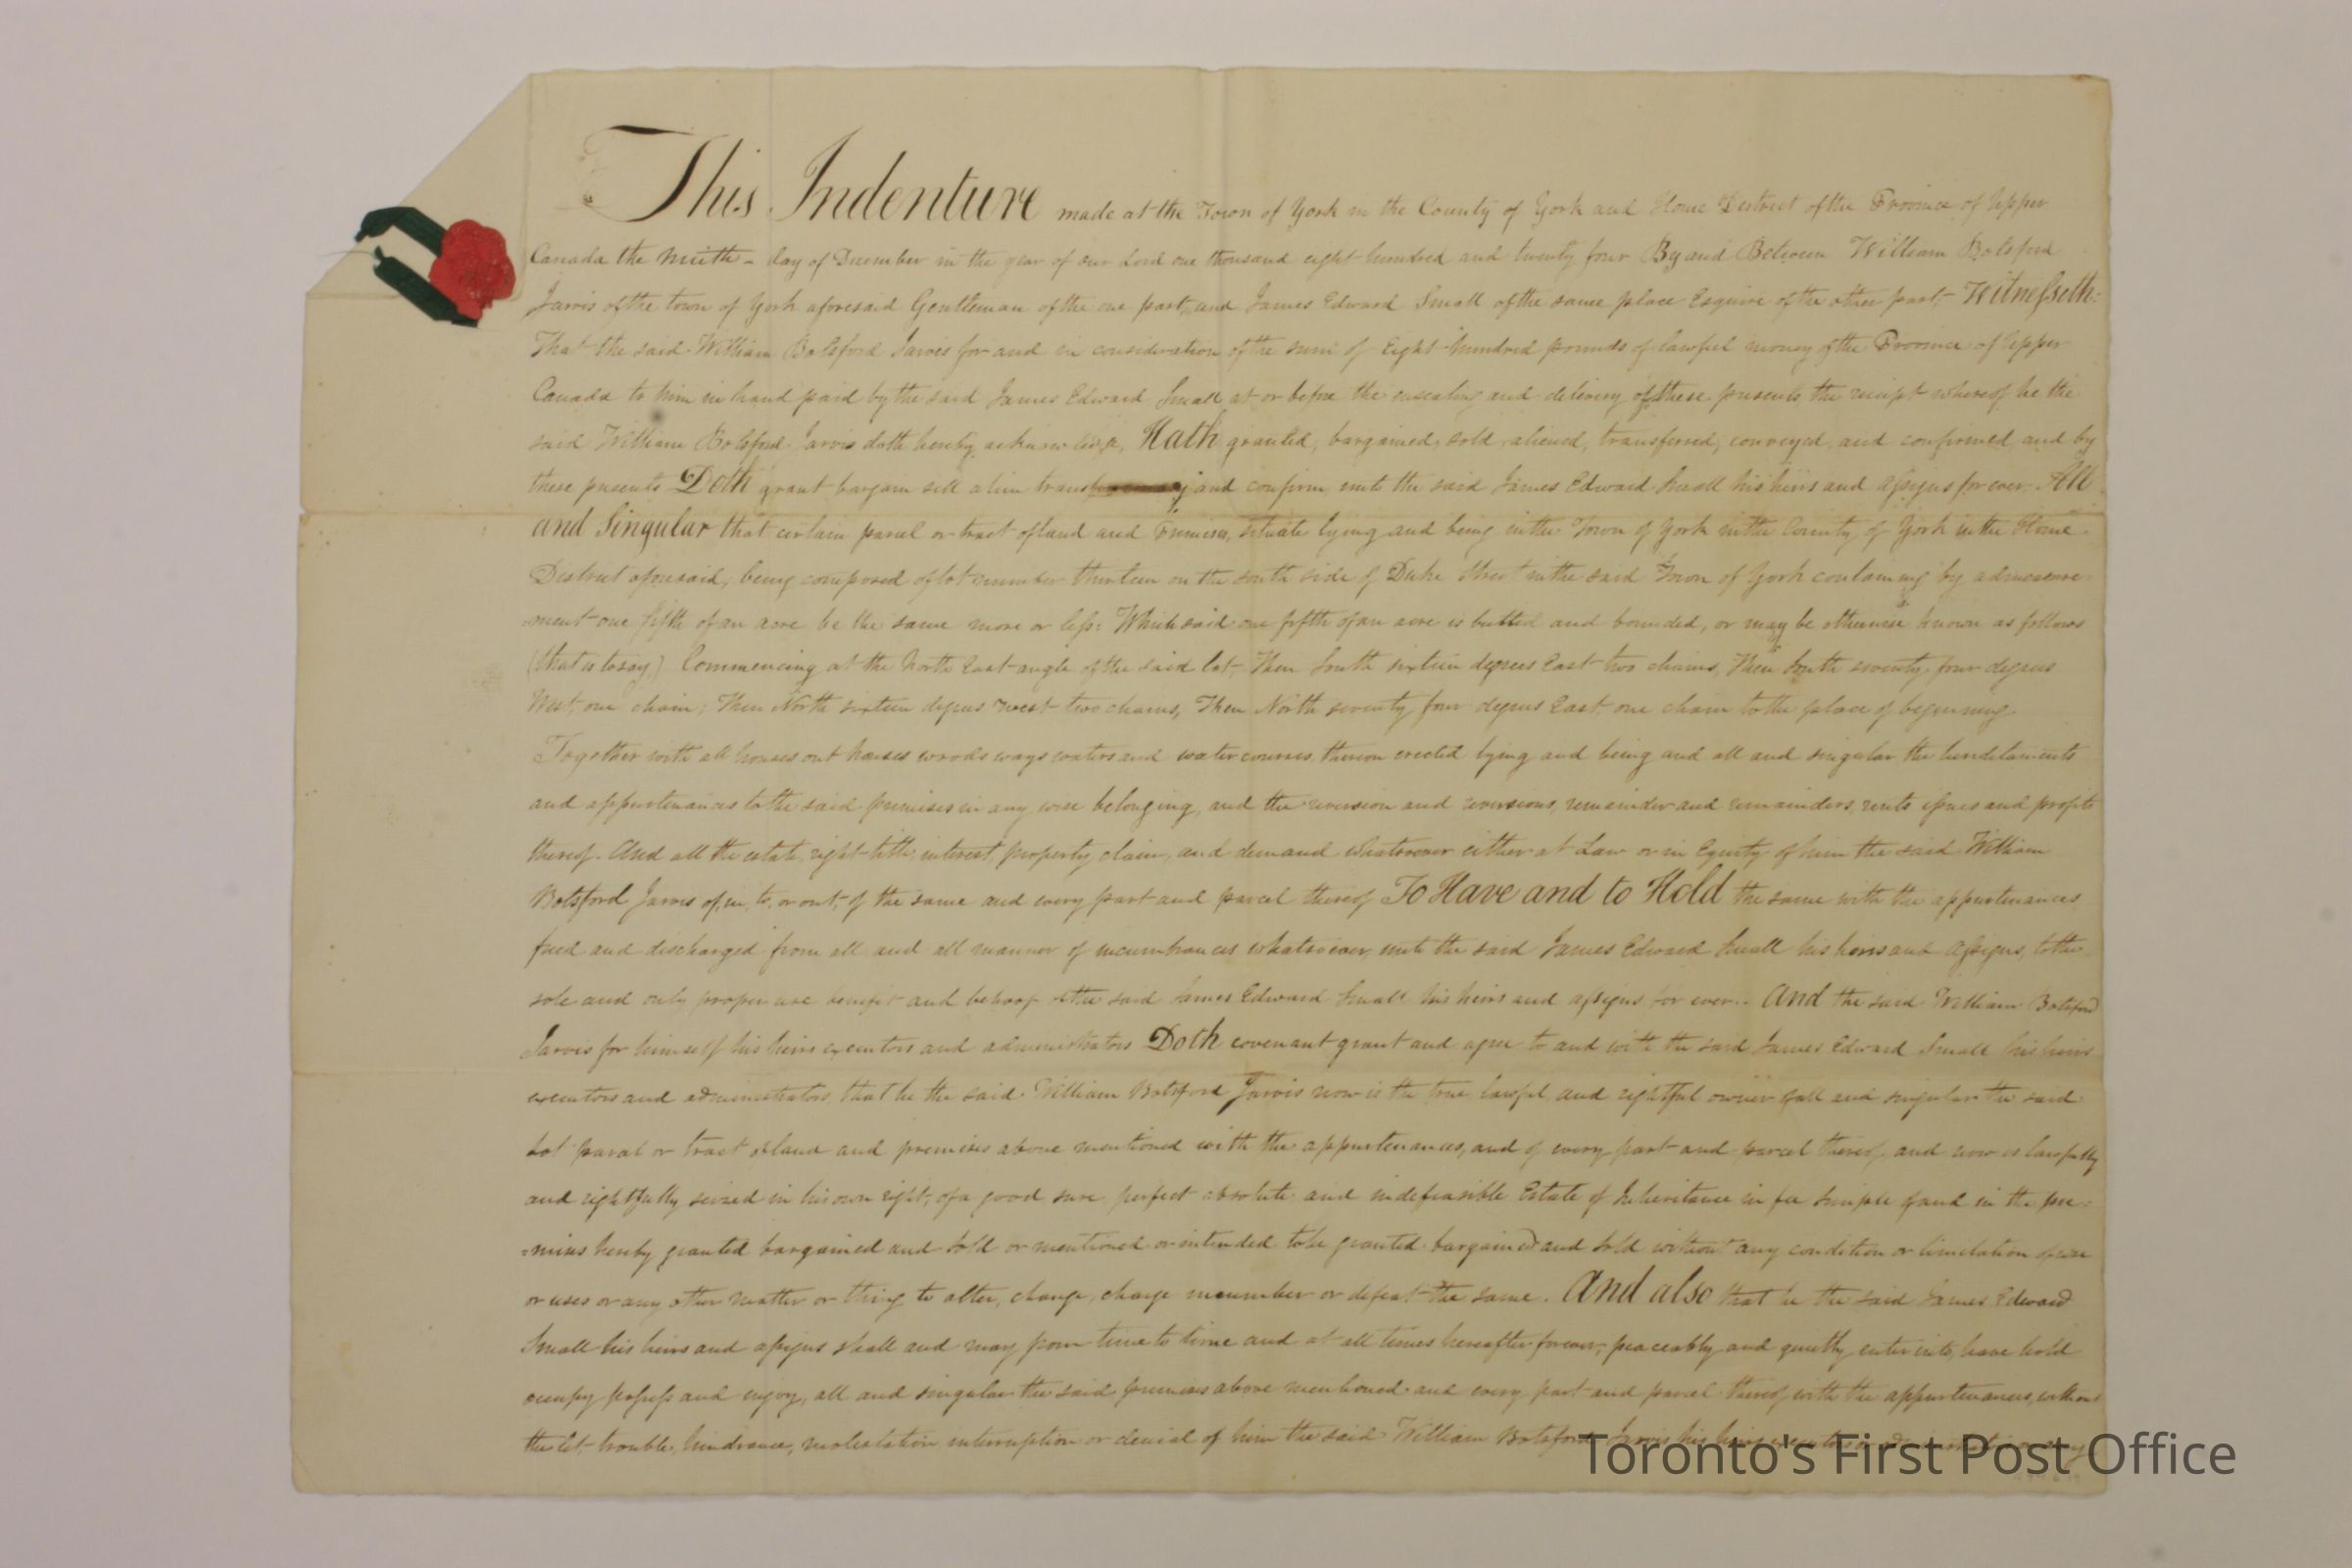 This Indenture made at the Town of York in the County of York and Home District of the Province of Upper
Canada the Ninth - day of December in the year of our Lord one thousand eight hundred and twenty four By and Between William Botsford
Jarvis of the town of York aforesaid Gentleman of the one part, and James Edward Small of the same place Esquire of the other part,- Witnesseth:
That the said William Botsford Jarvis for and in consideration of the sum of Eight hundred pounds of lawful money of the Province of Upper
Canada to him in hand paid by the said James Edward Small at or before the ensealing and delivery of these presents, the receipt whereof he the
said William Botsford Jarvis doth hereby acknowledge, Hath granted, bargained, sold, aliened, transferred, conveyed, and confirmed, and by
these presents Doth grant bargain sell alien and confirm unto the said James Edward Small his heirs and assigns for ever. All
and Singular that certain parcel or tract of land and Premises, situate lying and being in the Town of York in the County of York in the Home
District aforesaid, being composed of lot number thirteen on the south side of Duke Street in the said Town of York containing by admeasure-
=ment one fifth of an acre be the same more or less: Which said one fifth of an acre is butted and bounded, or may be otherwise known as follows
(that is to say) Commencing at the North East angle of the said lot, Then South sixteen degrees East two chains, Then South seventy four degrees
West, one chain; Then North sixteen degrees West two chains, Then North seventy four degrees East, one chain to the place of beginning
Together with all houses out houses woods ways waters and water courses, thereon erected lying and being and all and singular the hereditaments
and appurtenances to the said premises in any wise belonging, and the reversion and reversions, remainder and remainders, rents issues and profits
thereof. And all the estate, right title, interest, property, claim, and demand whatsoever either at Law or in Equity of him the said William
Botsford Jarvis of, in, to, or out, of the same and every part and parcel thereof To Have and to Hold the same with the appurtenances
freed and discharged from all and all manner of incumbrances whatsoever, unto the said James Edward Small his heirs and assigns, to the
sole and only proper use benefit and behoof of the said James Edward Small his heirs and assigns for ever. And the said William Botsford
Jarvis for himself his heirs executors and administrators Doth covenant grant and agree to and with the said James Edward Small his heirs
executors and administrators, that he the said William Botsford Jarvis now is the true, lawful, and rightful owner of all and singular the said
Lot parcel or tract of land and premises above mentioned with the appurtenances, and of every part and parcel thereof, and now is lawfully
and rightfully seized in his own right, of a good sure perfect absolute and indefeasible Estate of Inheritance in fee simple of and in the pre=
=mises hereby granted bargained and sold or mentioned or intended to be granted bargained and sold without any condition or limitation of use
or uses or any other matter or thing to alter, change, charge incumber or defeat the same. And also that he the said James Edward
Small his heirs and assigns shall and may from time to time and at all times hereafter forever, peaceably and quietly enter into, have hold
occupy possess and enjoy, all and singular the said premises above mentioned and every part and parcel thereof with the appurtenances, without
the let, trouble, hindrance, molestation interruption or denial of him the said William Botsford Jarvis his heirs executors or
Toronto's First Post Office